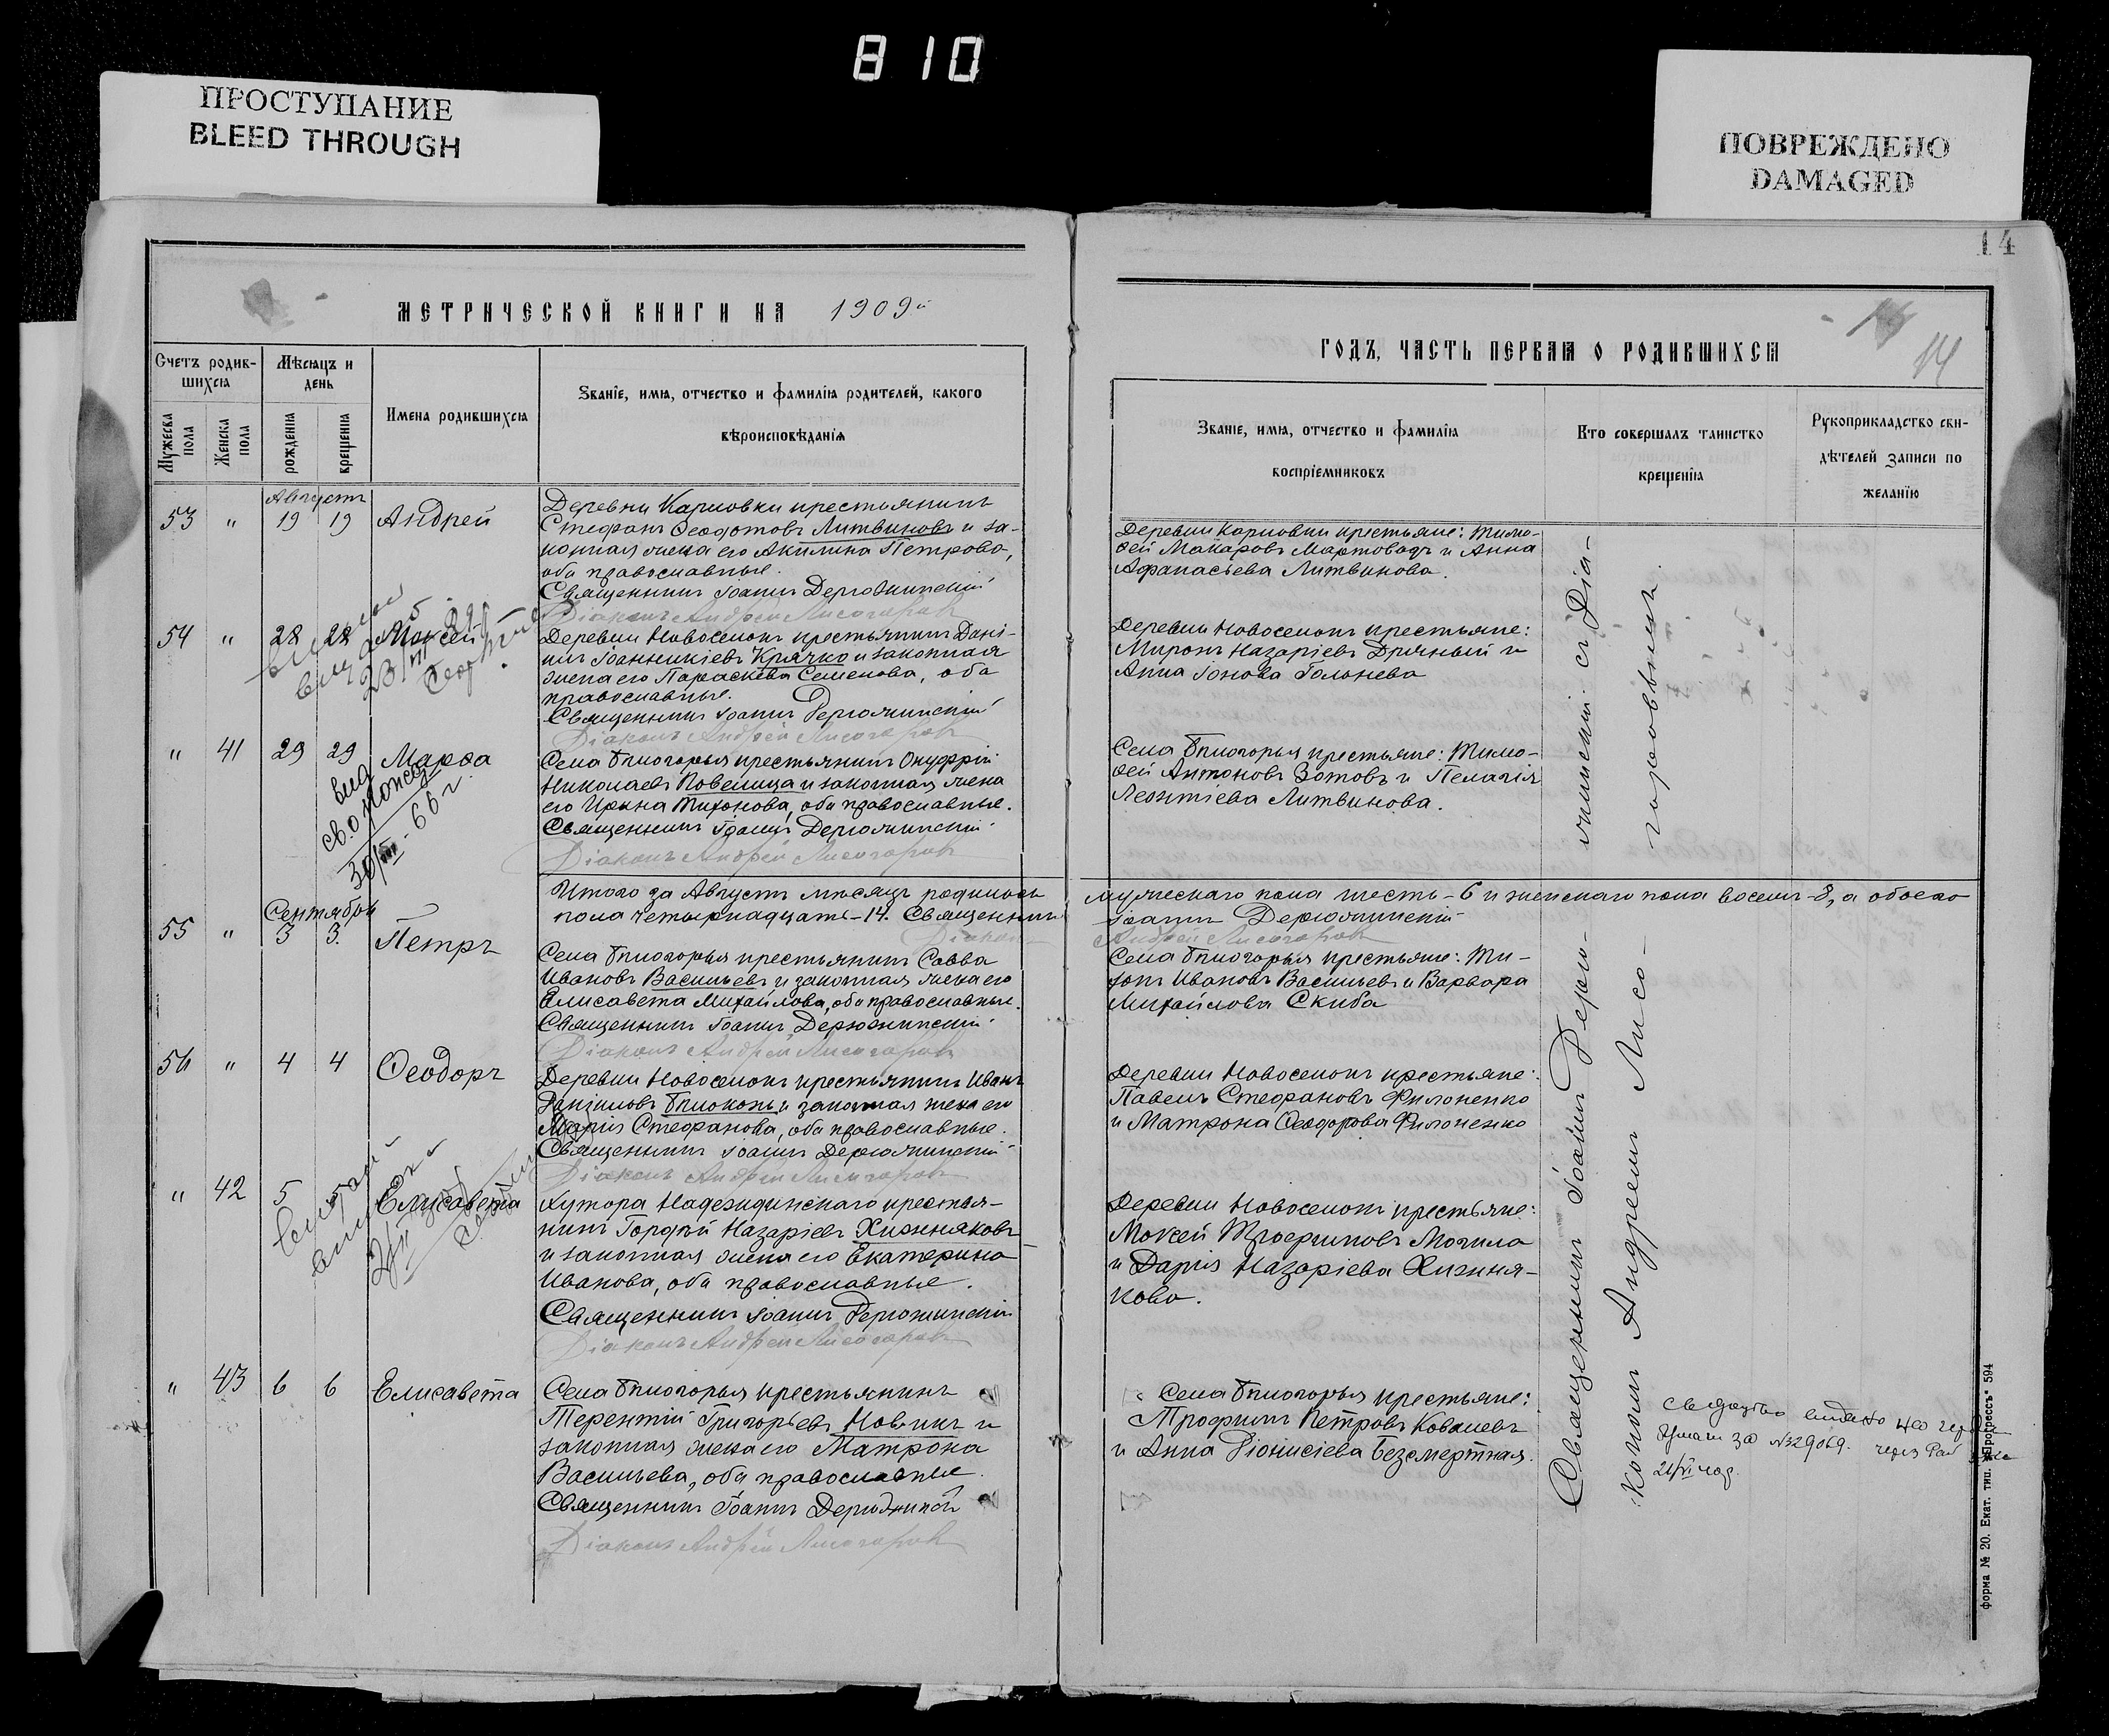 810
ПРОСТУПАНИЕ
BLEED THROUGH
ПОВРЕЖДЕНО
DAMAGED
14
МЕТРИЧЕСКОЙ КНИГИ НА 1909й
Счетъ родившихся
Мѣсяцъ и день
Мужеска пола
Женска пола
рожденія
крещенія
Имена родившихся
Званіе, имя, отчество и фамилія родителей, какого
вѣроисповѣданія
Августъ
53 " 19 19 Андрей
Деревни Карповки крестьянинъ
Стефанъ Ѳеодотовъ Литвиновъ и за-
конная жена его Акилина Петрова,
оба православные.
Священникъ Іоаннъ Дерюжинскій
Діаконъ Андрей Лисогоровъ
54 " 28 28 Моѵсей
Деревни Новоселокъ крестьянинъ Дані-
илъ Іоанникіевъ Крячко и законная
жена его Параскева Семенова, оба
православные.
Священникъ Іоаннъ Дерюжинскій
Діаконъ Андрей Лисогоровъ
" 41 29 29 Марѳа
Села Бѣлогорья крестьянинъ Онуфрій
Николаевъ Повелица и законная жена
его Ирина Тихонова, оба православные.
Священникъ Іоаннъ Дерюжинскій
Діаконъ Андрей Лисогоровъ
30/III-66 г.
Итого за Августъ мѣсяцъ родилось мужескаго пола шесть-6 и женскаго пола восемь-8, а обоего
пола четырнадцать-14. Священникъ Іоаннъ Дерюжинскій
Діаконъ Андрей Лисогоровъ
Сентябрь
55 " 3 3. Петръ
Села Бѣлогорья крестьянинъ Савва
Ивановъ Васильевъ и законная жена его
Елисавета Михайлова, оба православные.
Священникъ Іоаннъ Дерюжинскій
Діаконъ Андрей Лисогоровъ
56 " 4 4 Ѳеодоръ
Деревни Новоселокъ крестьянинъ Иванъ
Даніиловъ Бѣлоконь и законная жена его
Марія Стефанова, оба православные.
Священникъ Іоаннъ Дерюжинскій
Діаконъ Андрей Лисогоровъ
" 42 5 5 Елисавета
Хутора Надеждинскаго крестья-
нинъ Гордій Назаріевъ Хижняковъ
и законная жена его Екатерина
Иванова, оба православные.
Священникъ Іоаннъ Дерюжинскій
Діаконъ Андрей Лисогоровъ
" 43 6 6 Елисавета
Села Бѣлогорья крестьянинъ
Терентій Григорьевъ Новикъ и
законная жена его Матрона
Васильева, оба православные.
Священникъ Іоаннъ Дерюжинскій
Діаконъ Андрей Лисогоровъ
14
ГОДЪ, ЧАСТЬ ПЕРВАЯ О РОДИВШИХСЯ
Званіе, имя, отчество и фамилія
воспріемниковъ
Кто совершалъ таинство
крещенія
Рукоприкладство сви-
дѣтелей записи по
желанію
Деревни Карповки крестьяне: Тимо-
ѳей Макаровъ Мартоводъ и Анна
Афанасьева Литвинова.
Деревни Новоселокъ крестьяне:
Миронъ Назаріевъ Дрячный и
Анна Іонова Голонева
Села Бѣлогорья крестьяне: Тимо-
ѳей Антоновъ Зотовъ и Пелагія
Леонтіева Литвинова.
Села Бѣлогорья крестьяне: Ти-
хонъ Ивановъ Васильевъ и Варвара
Михайлова Скиба
Деревни Новоселокъ крестьяне:
Павелъ Стефановъ Филоненко
и Матрона Ѳеодорова Филоненко
Деревни Новоселокъ крестьяне:
Моѵсей Могила
и Дарія Назаріева Хижня-
кова.
Села Бѣлогорья крестьяне:
Трофимъ Петровъ Ковалевъ
и Анна Діонисіева Безсмертная.
Священникъ Іоаннъ Дерю-
жинскій съ Діа-
кономъ Андреемъ Лисо-
горовымъ.
за №29069. через
форма № 20. Екат. тип. „Прогрессъ“ 594